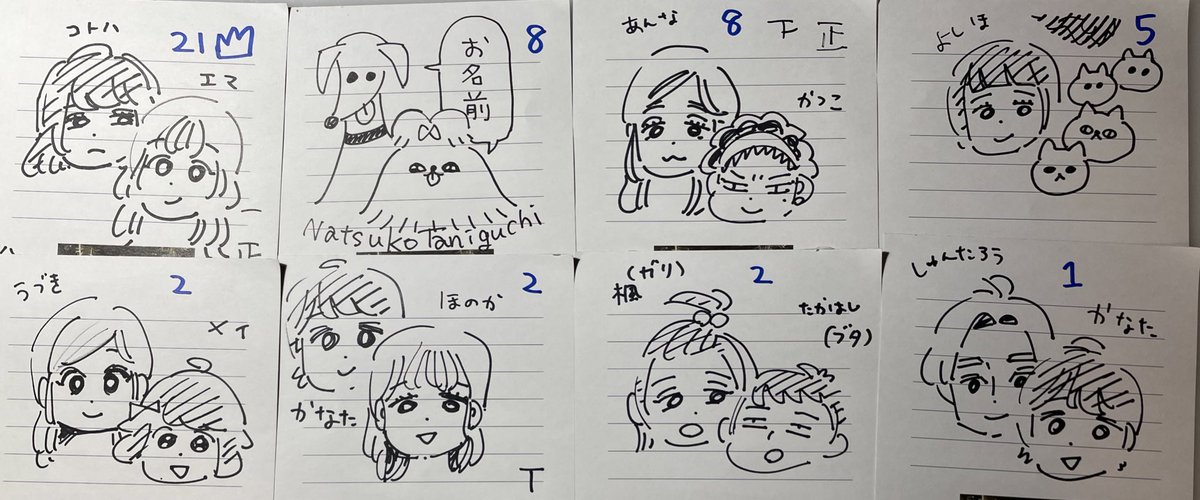 コトハ
21
エマ
正
8
お名前
Natsuko Taniguchi
あんな
8
下 正
かつこ
よしほ
5
うづき
2
メイ
ほのか
2
かなた
T
(ガリ)
楓
2
たかはし
(ブタ)
しゅんたろう
1
かなた